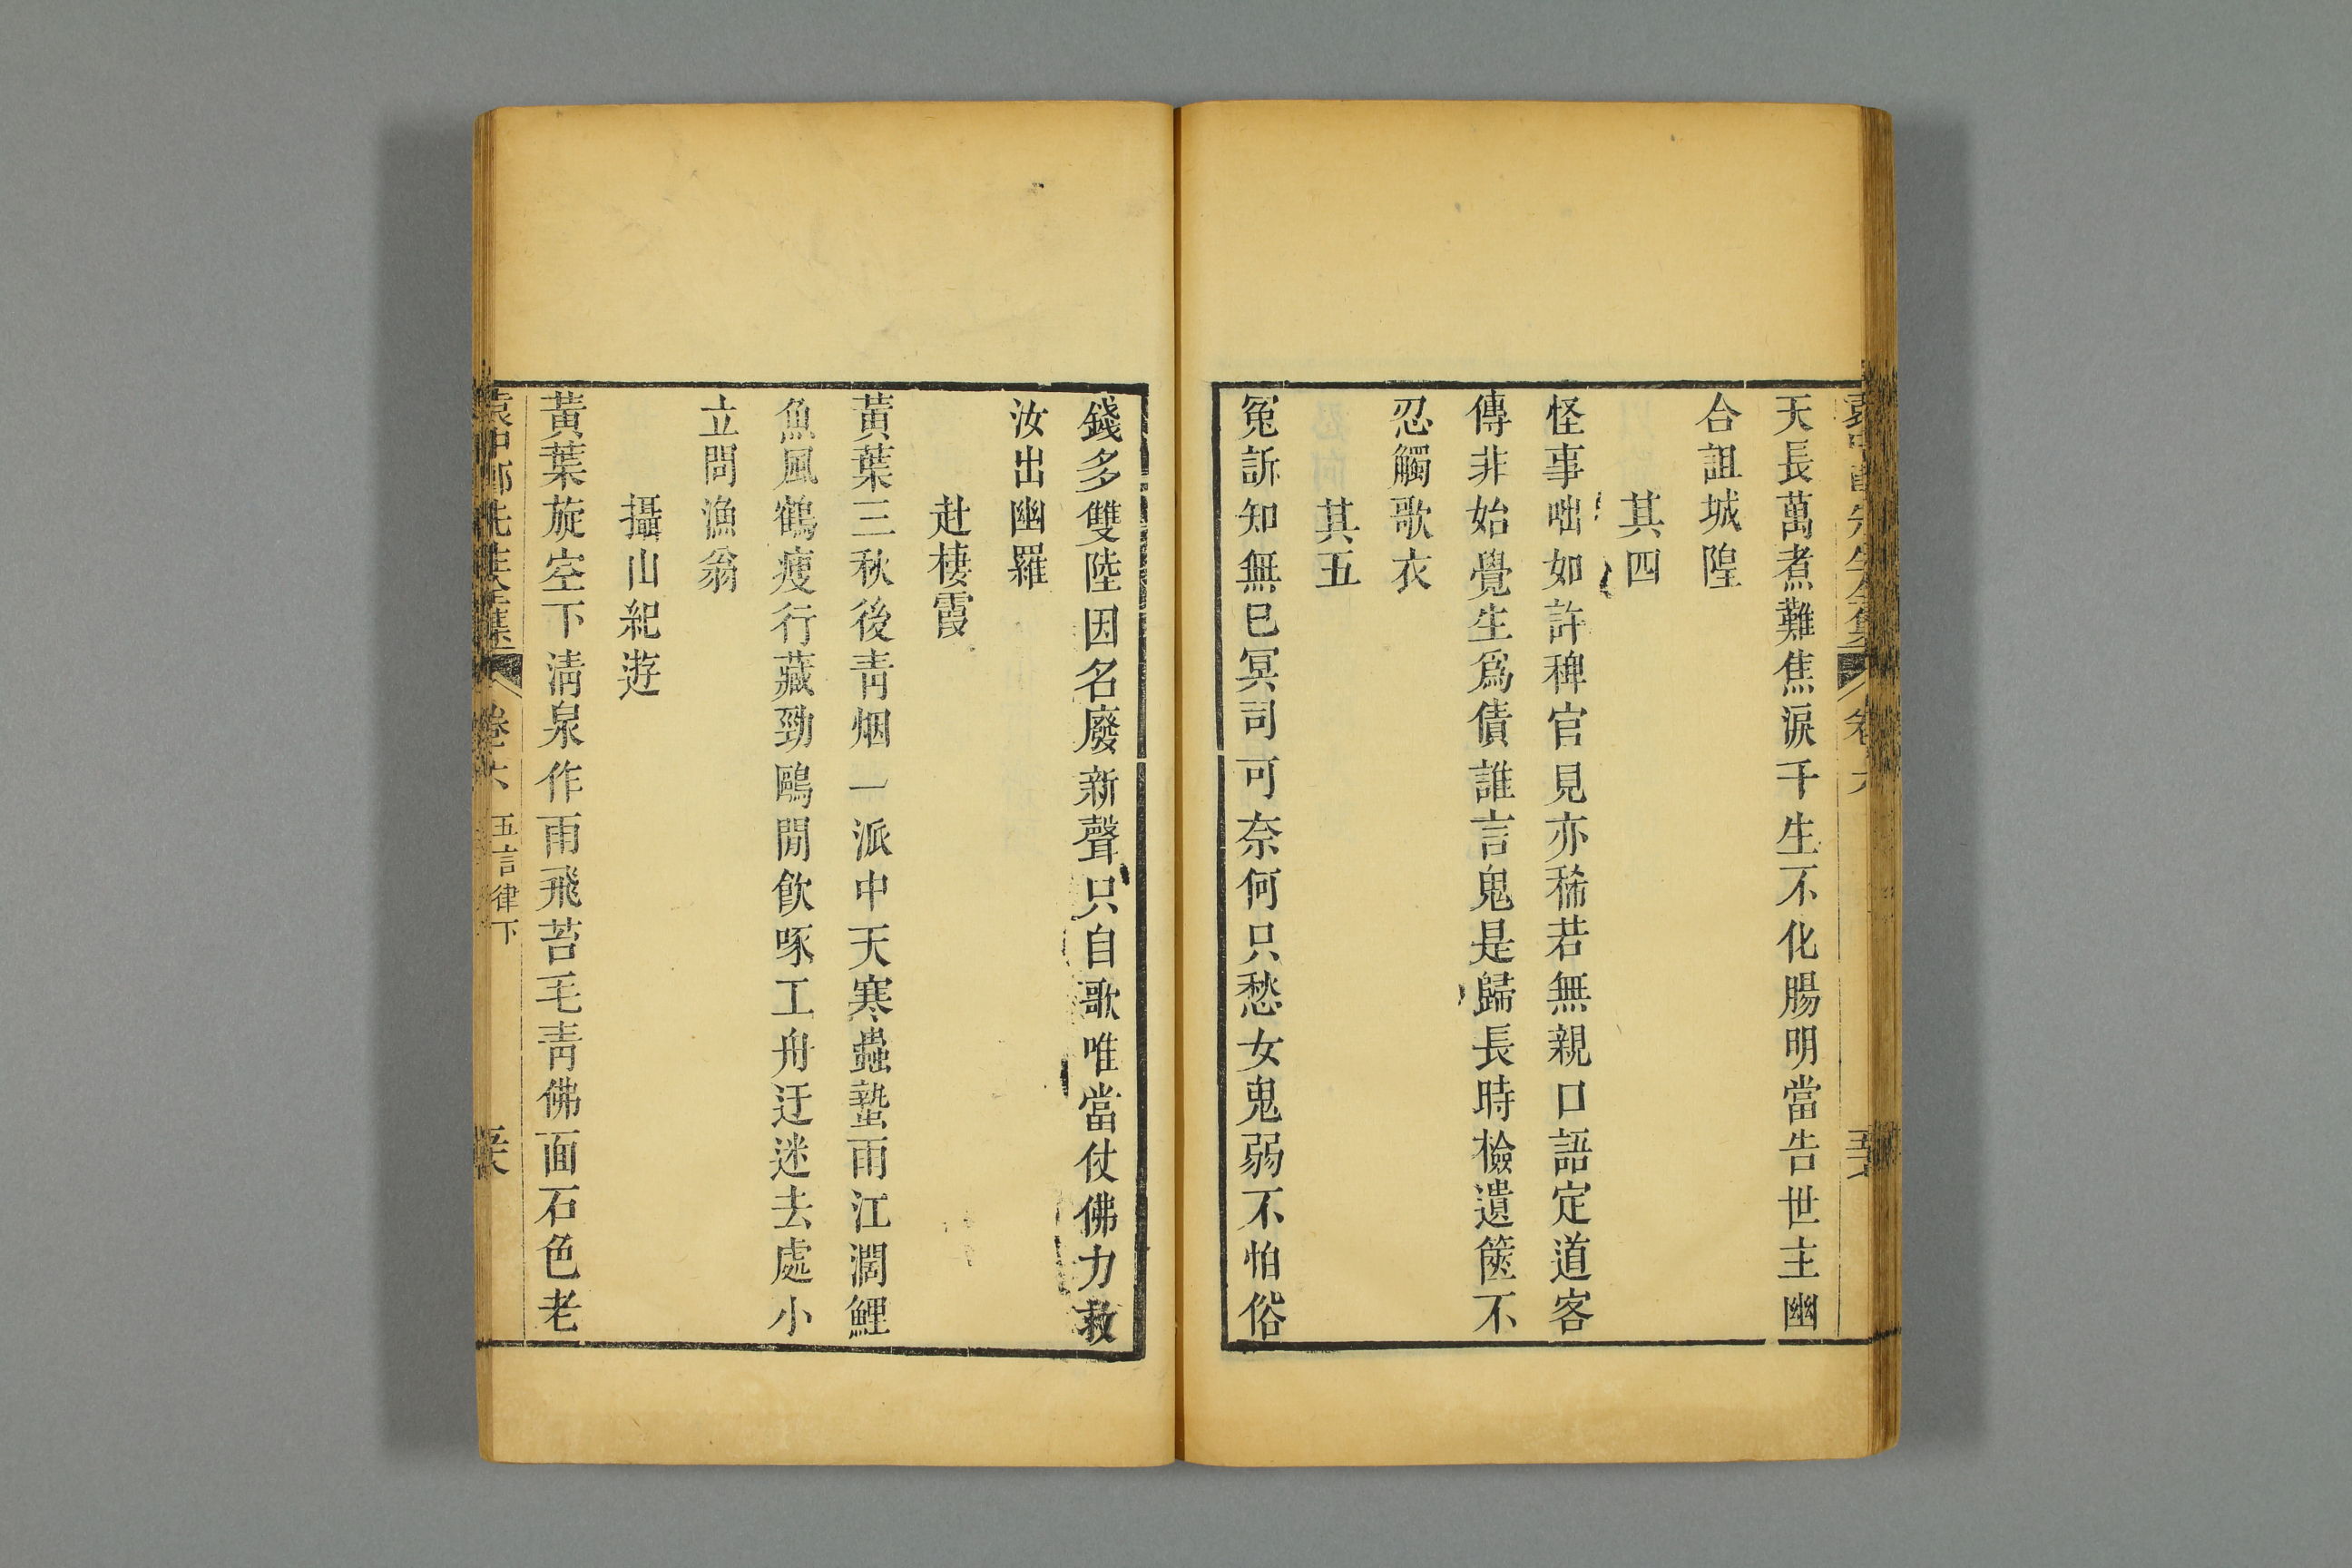 天長萬煮難焦淚千生不化腸明當告世主幽
合詛城隍
其四
怪事咄如許稗官見亦稀若無親口語定道客
傳非始覺生爲債誰言鬼是歸長時檢遺篋不
忍觸歌衣
其五
冤訴知無已冥司可奈何只愁女鬼弱不怕俗
錢多雙陸因名廢新聲只自歌唯當仗佛力救
汝出幽羅
赴棲霞
黃葉三秋後青烟一派中天寒蟲蟄雨江濶鯉
魚風鶴瘦行藏勁鷗閒飲啄工舟迂迷去處小
立問漁翁
攝山紀遊
黃葉旋空下淸泉作雨飛苔毛青佛面石色老
袁中郎先生全集 卷六 五言律下